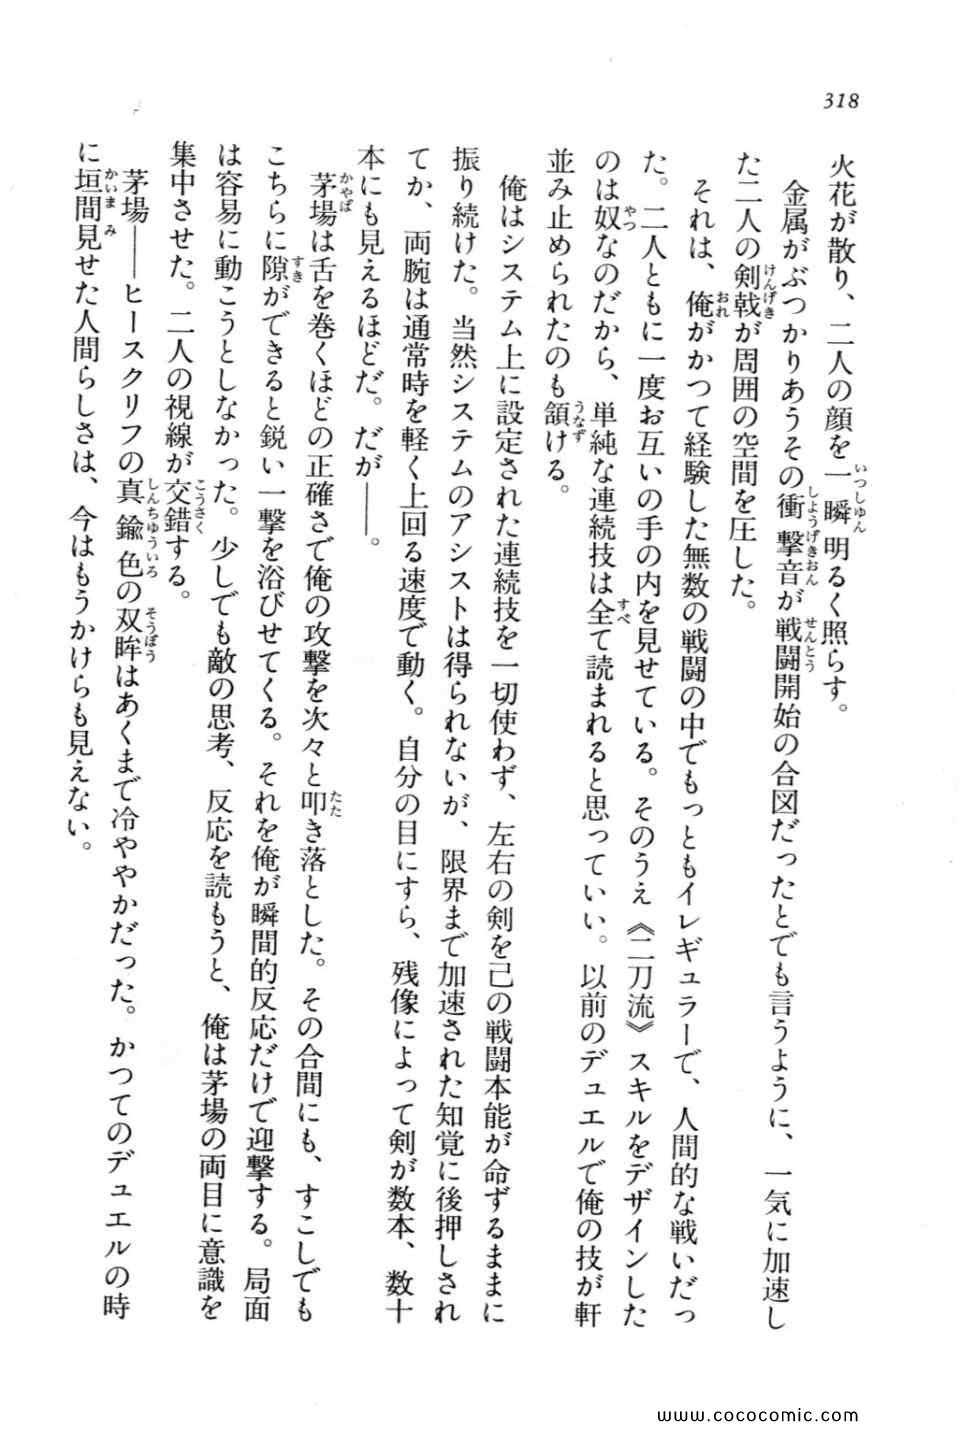 318
火花が散り、二人の顔を一瞬明るく照らす。
金属がぶつかりあうその衝撃音が戦闘開始の合図だったとでも言うように、一気に加速し
た二人の剣戟が周囲の空間を圧した。
それは、俺がかつて経験した無数の戦闘の中でもっともイレギュラーで、人間的な戦いだっ
た。二人ともに一度お互いの手の内を見せている。そのうえ《二刀流》スキルをデザインした
のは奴なのだから、単純な連続技は全て読まれると思っていい。以前のデュエルで俺の技が軒
並み止められたのも頷ける。
俺はシステム上に設定された連続技を一切使わず、左右の剣を己の戦闘本能が命ずるままに
振り続けた。当然システムのアシストは得られないが、限界まで加速された知覚に後押しされ
てか、両腕は通常時を軽く上回る速度で動く。自分の目にすら、残像によって剣が数本、数十
本にも見えるほどだ。だが――。
茅場は舌を巻くほどの正確さで俺の攻撃を次々と叩き落とした。その合間にも、すこしでも
こちらに隙ができると鋭い一撃を浴びせてくる。それを俺が瞬間的反応だけで迎撃する。局面
は容易に動こうとしなかった。少しでも敵の思考、反応を読もうと、俺は茅場の両目に意識を
集中させた。二人の視線が交錯する。
茅場――ヒースクリフの真鍮色の双眸はあくまで冷ややかだった。かつてのデュエルの時
に垣間見せた人間らしさは、今はもうかけらも見えない。
www.cococomic.com